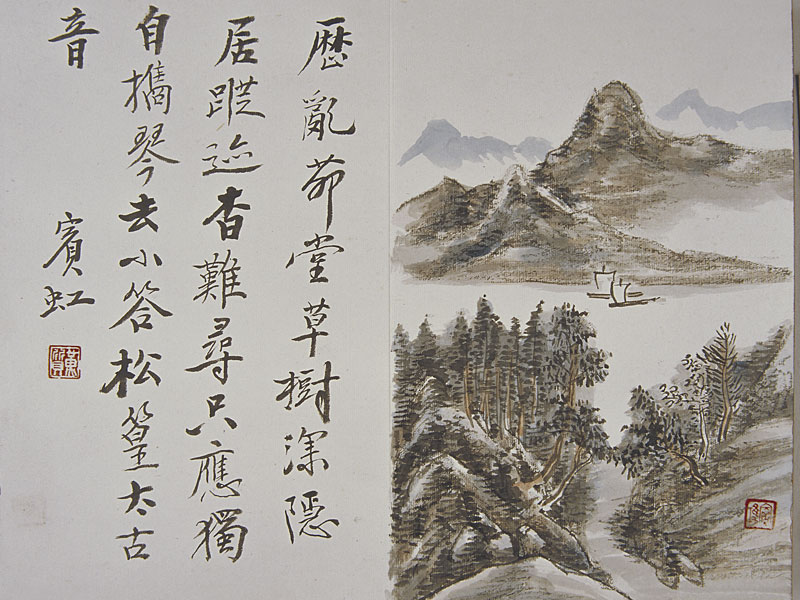 歷亂茆堂草樹深隱
居蹤迹杳難尋只應獨
自攜琴去小答松篁太古
音
賓虹